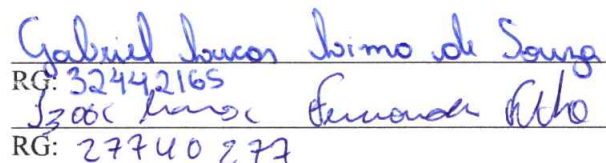 Gabriel Lucas Limo de Souza
RG: 32442165
Fernandes Filho
RG: 27740277